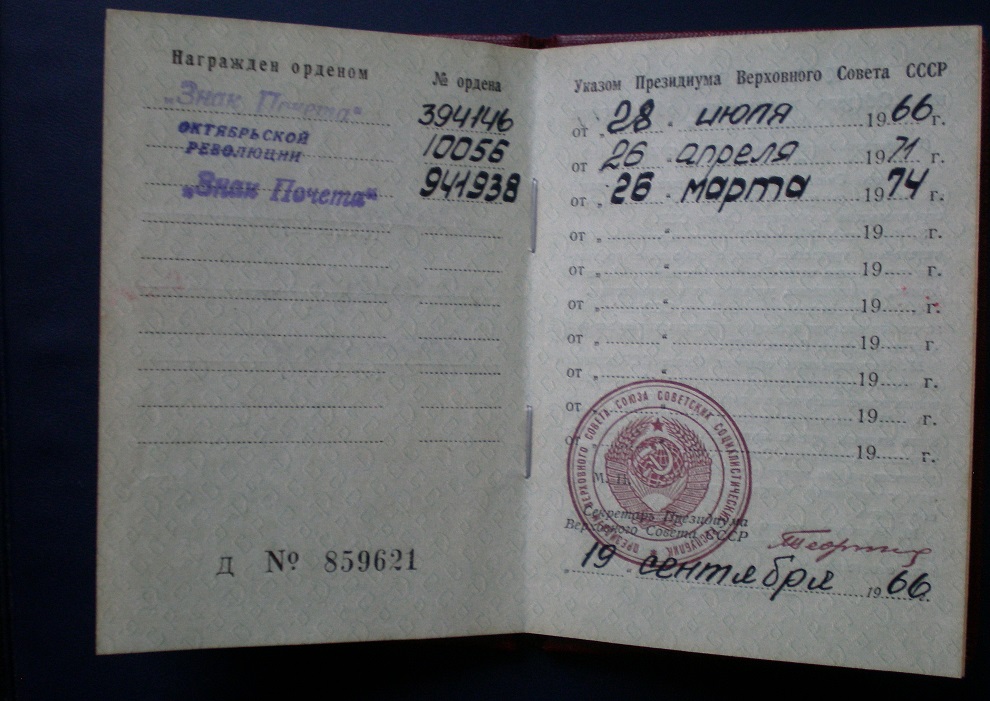 Награжден орденом
№ ордена
„Знак Почета“
394146
ОКТЯБРЬСКОЙ
РЕВОЛЮЦИИ
10056
„Знак Почета“
941938
Д № 859621
Указом Президиума Верховного Совета СССР
от „28“ июля 1966 г.
от „26“ апреля 1971 г.
от „26“ марта 1974 г.
от „ “ 19 г.
от „ “ 19 г.
от „ “ 19 г.
от „ “ 19 г.
от „ “ 19 г.
от „ “ 19 г.
от „ “ 19 г.
М. П.
ВЕРХОВНОГО СОВЕТА СОЮЗА СОВЕТСКИХ СОЦИАЛИСТИЧЕСКИХ РЕСПУБЛИК ПРЕЗИДИУМ
Секретарь Президиума
Верховного Совета СССР
„19“ сентября 1966